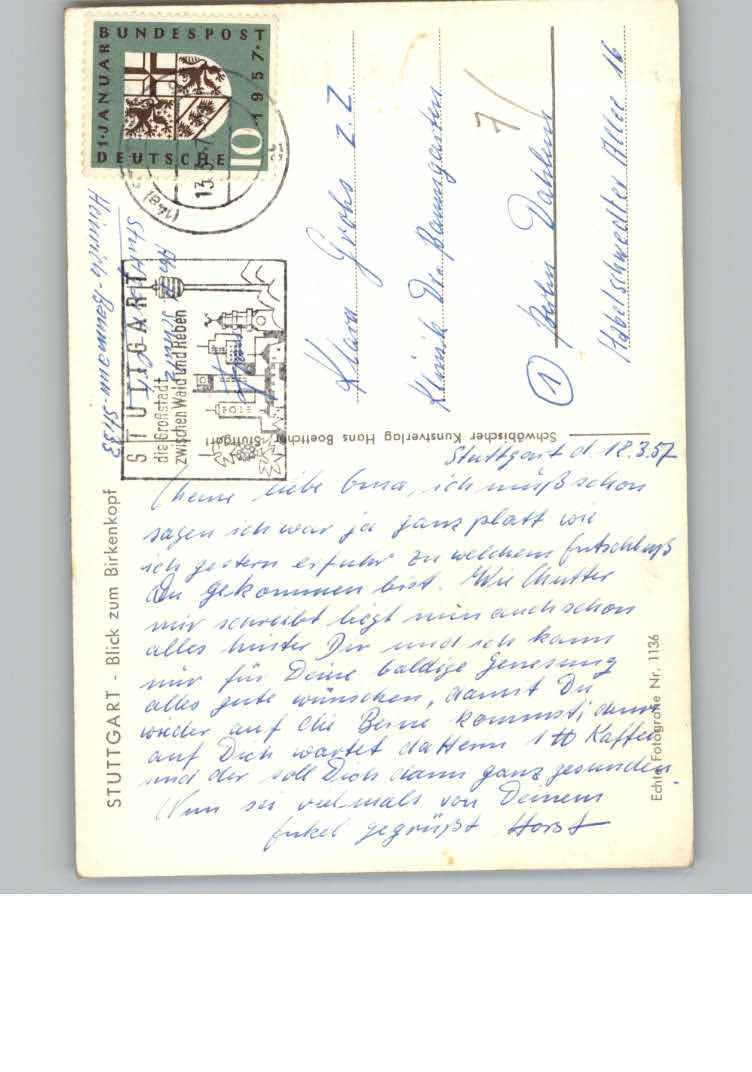 BUNDESPOST
1. JANUAR 1957
DEUTSCHE
10
13.
(14a)
STUTTGART
die Großstadt
zwischen Wald und Reben
Stuttgart
Heinrich-Baumann-Str. 33
Klara Grohs z. Z.
Klinik Dr. Baumgarten
7/
① Berlin Dahlem
Habelschwedter Allee 16
Schwäbischer Kunstverlag Hans Boettcher Stuttgart
STUTTGART - Blick zum Birkenkopf
Echte Fotografie Nr. 1136
Stuttgart d. 18.3.57
Meine liebe Oma, ich muß schon
sagen ich war ja ganz platt wie
ich gestern erfuhr zu welchem Entschluß
Du gekommen bist. Wie Mutter
mir schreibt liegt nun auch schon
alles hinter Dir und ich kann
nur für Deine baldige Genesung
alles gute wünschen, damit Du
wieder auf die Beine kommst; denn
auf Dich wartet daheim 1 ℔ Kaffee
und der soll Dich dann ganz gesunden.
Nun sei vielmals von Deinem
Enkel gegrüßt Horst